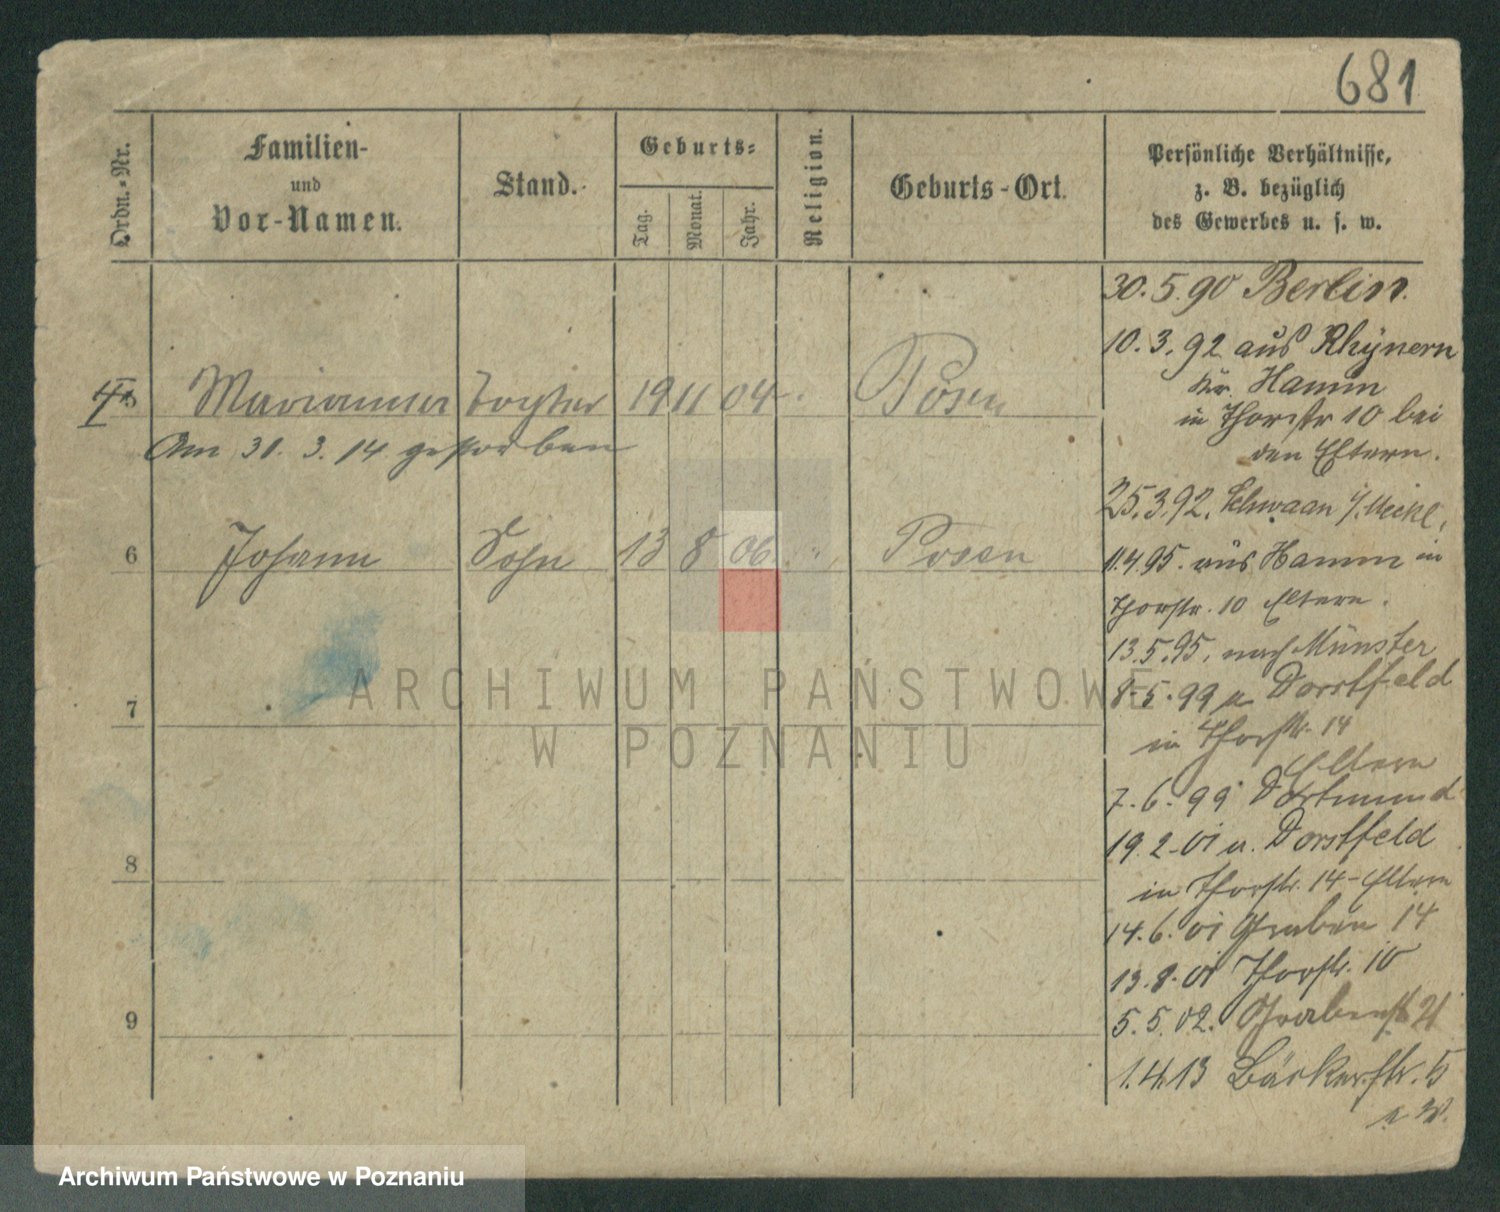 681
Ordn.-Nr.
Familien-
und
Vor-Namen.
Stand.
Geburts-
Tag.
Monat.
Jahr.
Religion.
Geburts-Ort.
Persönliche Verhältnisse,
z. B. bezüglich
des Gewerbes u. s. w.
30. 5. 90 Berlin.
10. 3. 92 aus Rhynern
Kr. Hamm
in Thorstr 10 bei
den Eltern.
5 Marianna Tochter 19 11 04 Posen
Am 31. 3. 14 gestorben
25. 3. 92. Schwaan i/. Meckl.
6 Johann Sohn 13 8 06 " Posen
11. 4. 95. aus Hamm in
Thorstr. 10 Eltern.
13. 5. 95. nach Münster
8. 5. 99 a Dorstfeld
in Thorstr. 14
Eltern
7
7. 6. 99 Dortmund
19. 2. 01 a. Dorstfeld
in Thorstr. 14 - Eltern
8
14. 6. 01 Graben 14
13. 8. 01 Thorstr. 10
5. 5. 02. Grabenstr 21
9
1. 4. 13 Bäckerstr. 5
ARCHIWUM PAŃSTWOWE
W POZNANIU
Archiwum Państwowe w Poznaniu